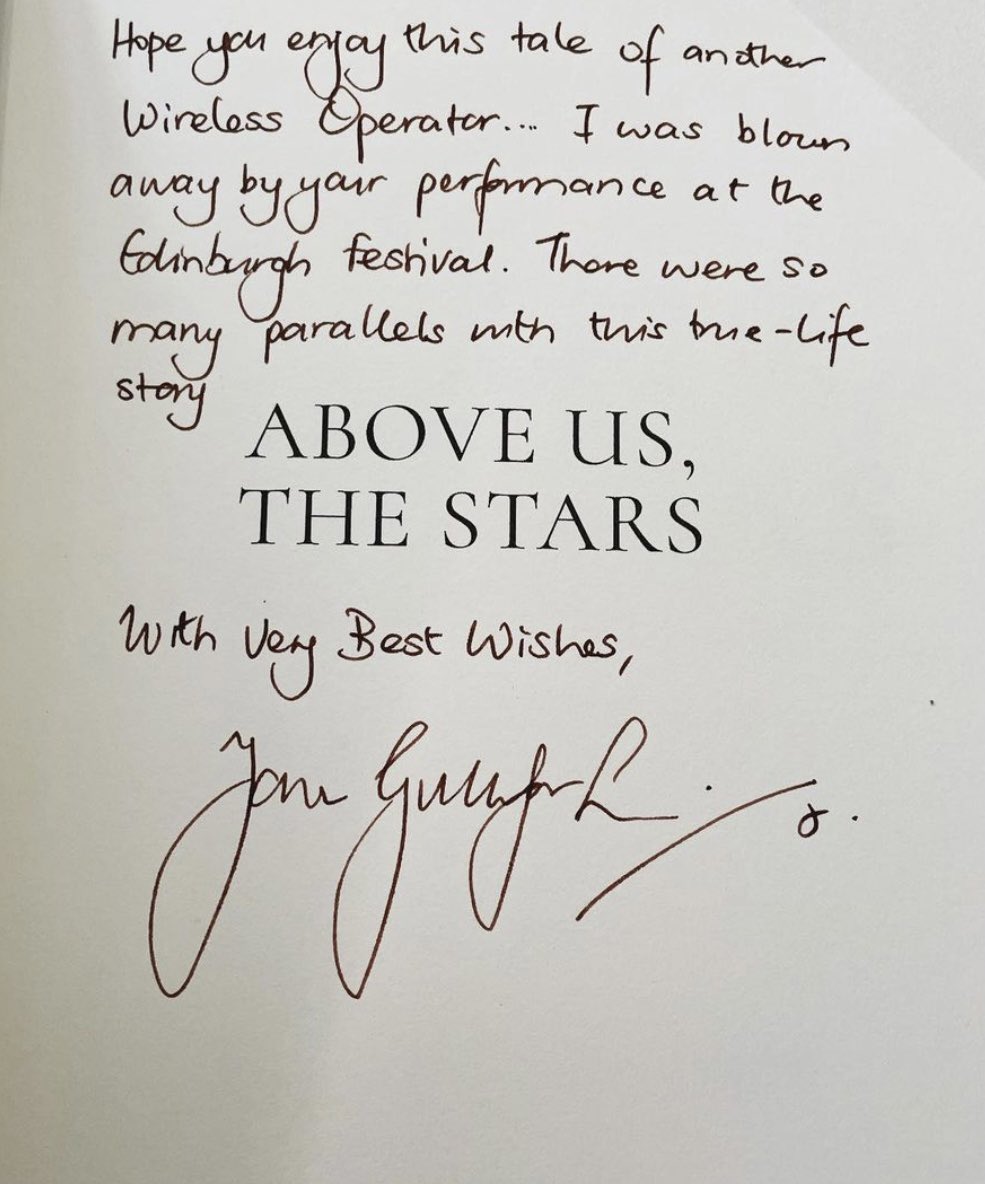 Hope you enjoy this tale of another
Wireless Operator.... I was blown
away by your performance at the
Edinburgh festival. There were so
many parallels with this true-life
story
ABOVE US,
THE STARS
With Very Best Wishes,
Jane Gulliford